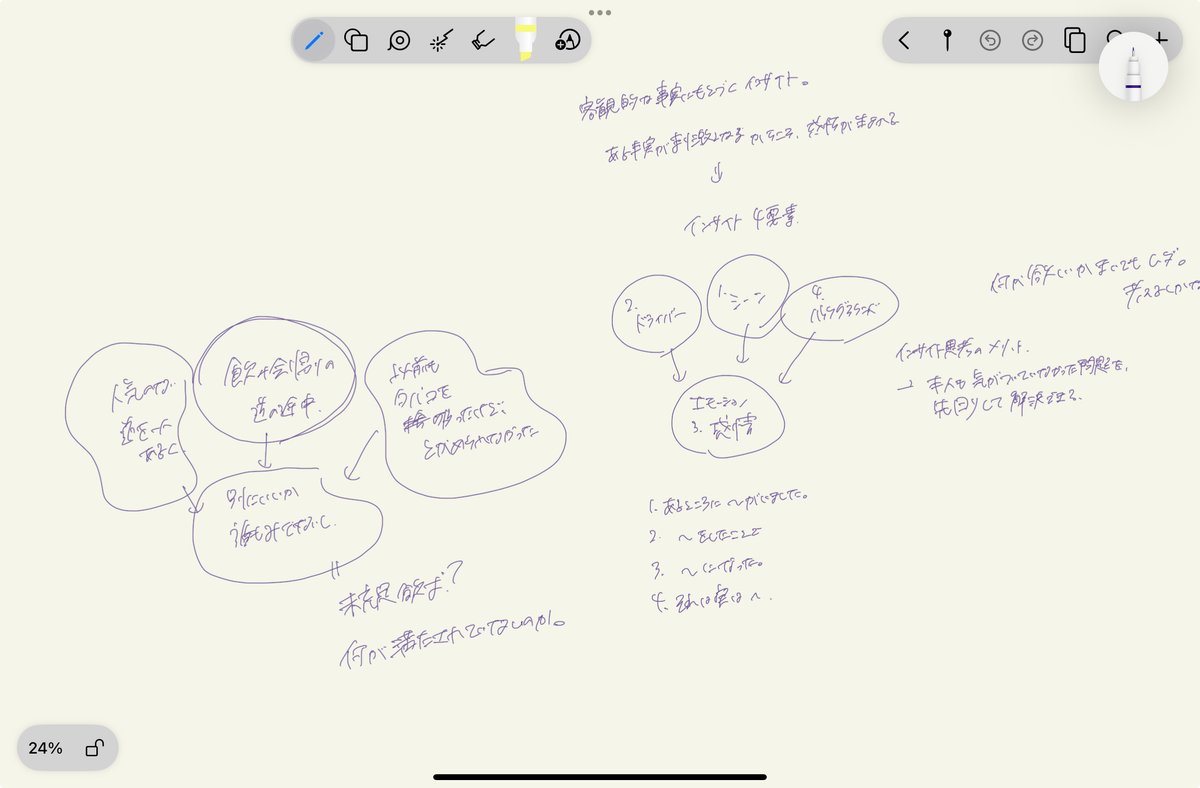 客観的な事実にもとづくインサイト。
ある事実が刺激となるからこそ、感情が生まれる
↓
インサイト 4要素
2.
ドライバー
1.
シーン
4.
バックグラウンド
エモーション
3. 感情
1. あるところに〜がいました。
2. 〜をしたことで
3. 〜になった。
4. それは実は〜.
何が欲しいかきいてもムダ。
インサイト思考のメリット.
→ 本人も気がついていなかった問題を、
先回りして解決できる.
人気のない
道を
あるく.
飲み会帰りの
道の途中.
以前も
タバコを
吸ったけど
とがめられなかった
別にいいか
誰もみてないし.
未充足欲求?
何が満たされてないのか。
24%